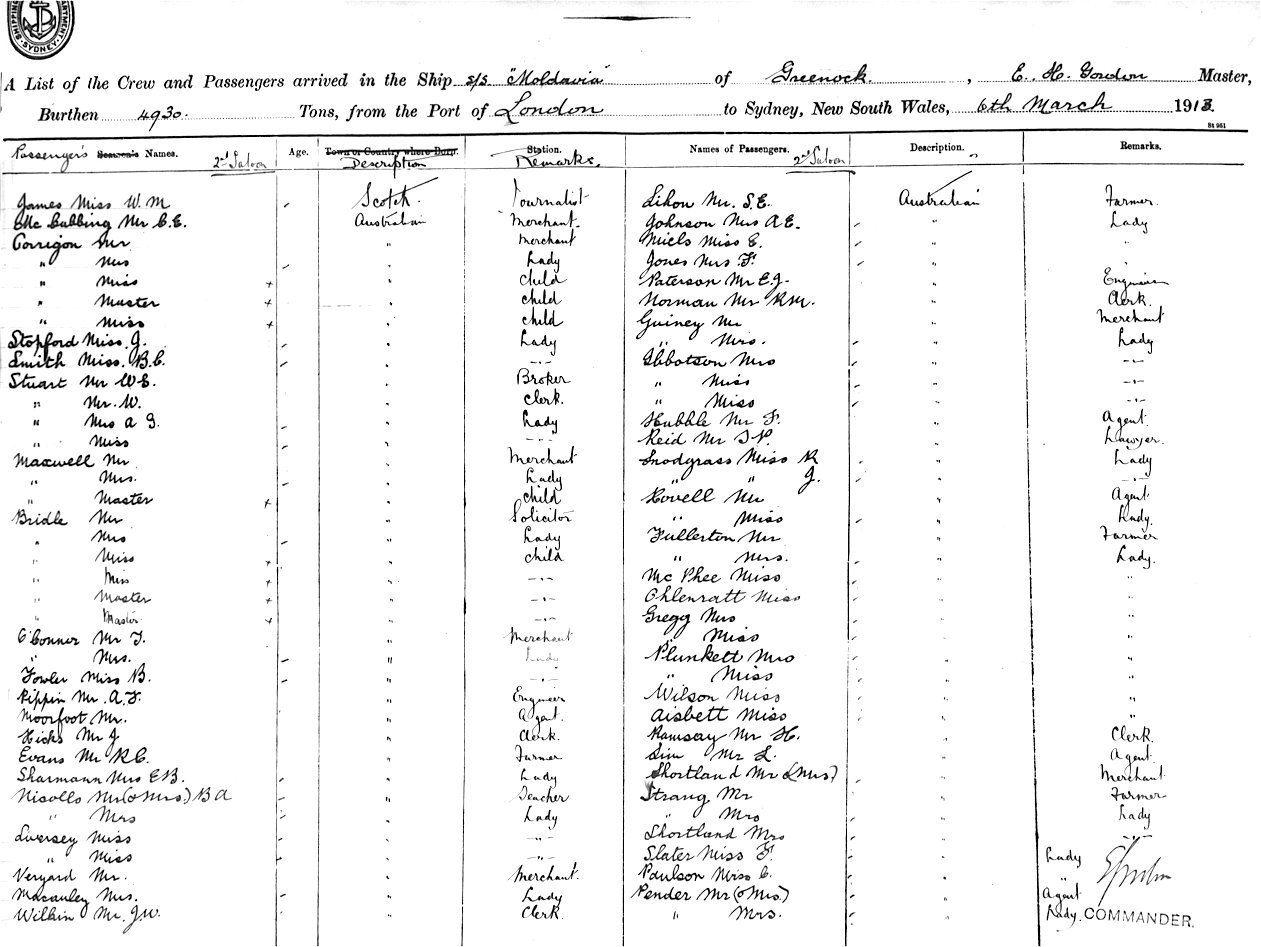 SHIPPING DEPARTMENT. SYDNEY.
A List of the Crew and Passengers arrived in the Ship s/s "Moldavia" of Greenock, E. H. Gordon Master,
Burthen 4930. Tons, from the Port of London to Sydney, New South Wales, 6th March 1913.
St 961
Passenger's Seamen's Names. 2nd Saloon Age. Town or Country where Born. Description Station. Remarks. Names of Passengers. 2nd Saloon Description. Remarks.
James Miss W. M Scotch Journalist Lihon Mr. S.E. Australian Farmer
Mc Cubbing Mr C.E. Australian Merchant Johnson Mrs A E. " Lady
Corrigon Mr " Merchant Miels Miss E. " "
" Mrs " Lady Jones Mrs F. " "
" Miss + " Child Paterson Mr E.J. " Engineer
" Master + " child Norman Mr R M. " Clerk.
" Miss + " child Guiney Mr " Merchant
Stopford Miss J. " Lady " Mrs. " Lady
Smith Miss. B.C. " -"- Ibbotson Mrs " -"-
Stuart Mr W E. " Broker " Miss " -"-
" Mr. W. " Clerk. " Miss " -"-
" Mrs A G. " Lady Hubble Mr F. " Agent.
" Miss " -"- Reid Mr " Lawyer.
Maxwell Mr " Merchant Snodgrass Miss R " Lady
" Mrs. " Lady " " J. " -"-
" Master + " child Hovell Mr " Agent
Bridle Mr " Solicitor " Miss " Lady.
" Mrs " Lady Fullerton Mr " Farmer
" Miss + " child " Mrs. " Lady.
" Miss + " -"- Mc Phee Miss " "
" Master + " -"- Ohlenratt Miss " "
" Master + " -"- Gregg Mrs " "
O'Conner Mr T. " Merchant " Miss " "
" Mrs. " Lady Plunkett Mrs " "
Fowler Miss B. " -"- " Miss " "
Pippin Mr. A. F. " Engineer Wilson Miss " "
Moorfoot Mr. " Agent. Aisbett Miss " "
Hicks Mr J " Clerk. Ramsay Mr H. " Clerk.
Evans Mr R C. " Farmer Sim Mr L. " Agent.
Sharmann Mrs E B. " Lady Shortland Mr (& Mrs) " Merchant
Nisolls Mr (& Mrs.) B A " Teacher Strang Mr " Farmer
" Mrs " Lady " Mrs " Lady
Liversey Miss " -"- Shortland Mrs " -"-
" Miss " -"- Slater Miss F. " Lady
Veryard Mr. " Merchant. Paulson Miss C. " "
Macauley Mrs. " Lady Pender Mr (& Mrs) " Agent
Wilkin Mr. J.W. " Clerk. " Mrs. " Lady. COMMANDER.